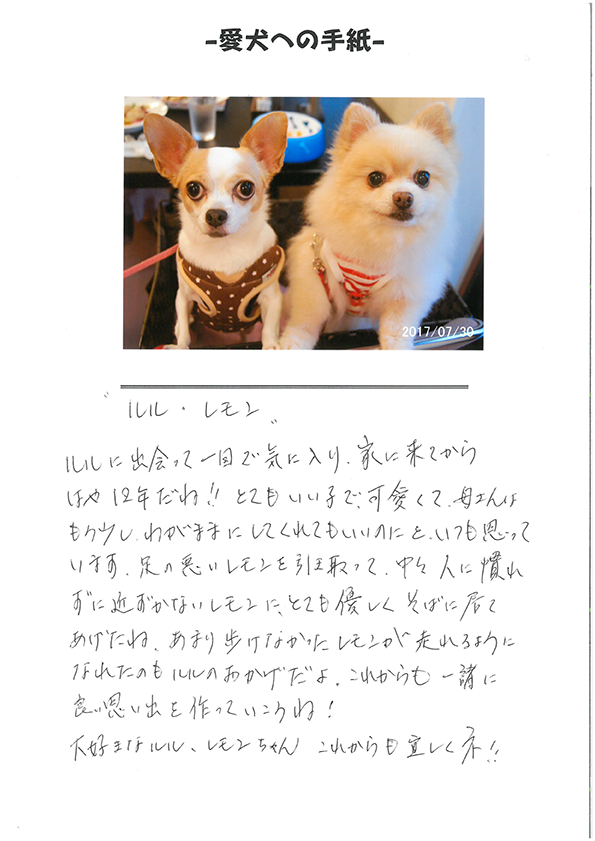 -愛犬への手紙-
2017/07/30
"ルル・レモン"
ルルに出会って一目で気に入り、家に来てから
はや12年だね!!とてもいい子で、可愛くて、母さんは
もう少し、わがままにしてくれてもいいのにと、いつも思って
います。足の悪いレモンを引き取って、中々人に慣れ
ずに近ずかないレモンに、とても優しくそばに居て
あげたね、あまり歩けなかったレモンが走れるように
なれたのもルルのおかげだよ。これからも一諸に
良い思い出を作っていこうね!
大好きなルル、レモンちゃん これからも宜しくネ!!